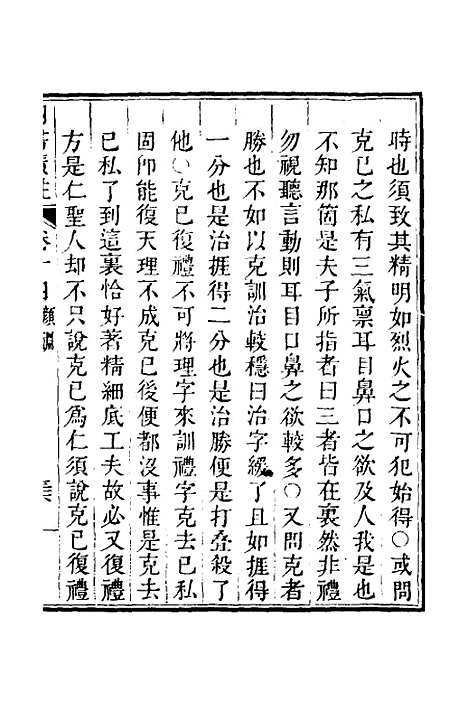 時也須致其精明如烈火之不可犯始得○或問
克已之私有三氣稟耳目鼻口之欲及人我是也
不知那箇是夫子所指者曰三者皆在裏然非禮
勿視聽言動則耳目口鼻之欲較多○又問克者
勝也不如以克訓治較穩曰治字緩了且如捱得
一分也是治捱得二分也是治勝便是打疊殺了
他○克已復禮不可將理字來訓禮字克去已私
固卽能復天理不成克已後便都沒事惟是克去
已私了到這裏恰好著精細底工夫故必又復禮
方是仁聖人却不只說克已爲仁須說克已復禮
卷十 顏淵